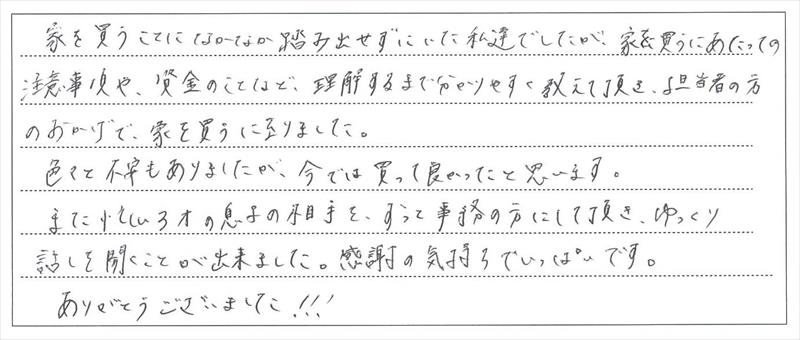 家を買うことになかなか踏み出せずにいた私達でしたが、家を買うにあたっての
注意事項や、資金のことなど、理解するまで分かりやすく教えて頂き、担当者の方
のおかげで、家を買うに至りました。
色々と不安もありましたが、今では買って良かったと思います。
また忙しい3才の息子の相手を、ずっと事務の方にして頂き、ゆっくり
話しを聞くことが出来ました。感謝の気持ちでいっぱいです。
ありがとうございました!!!